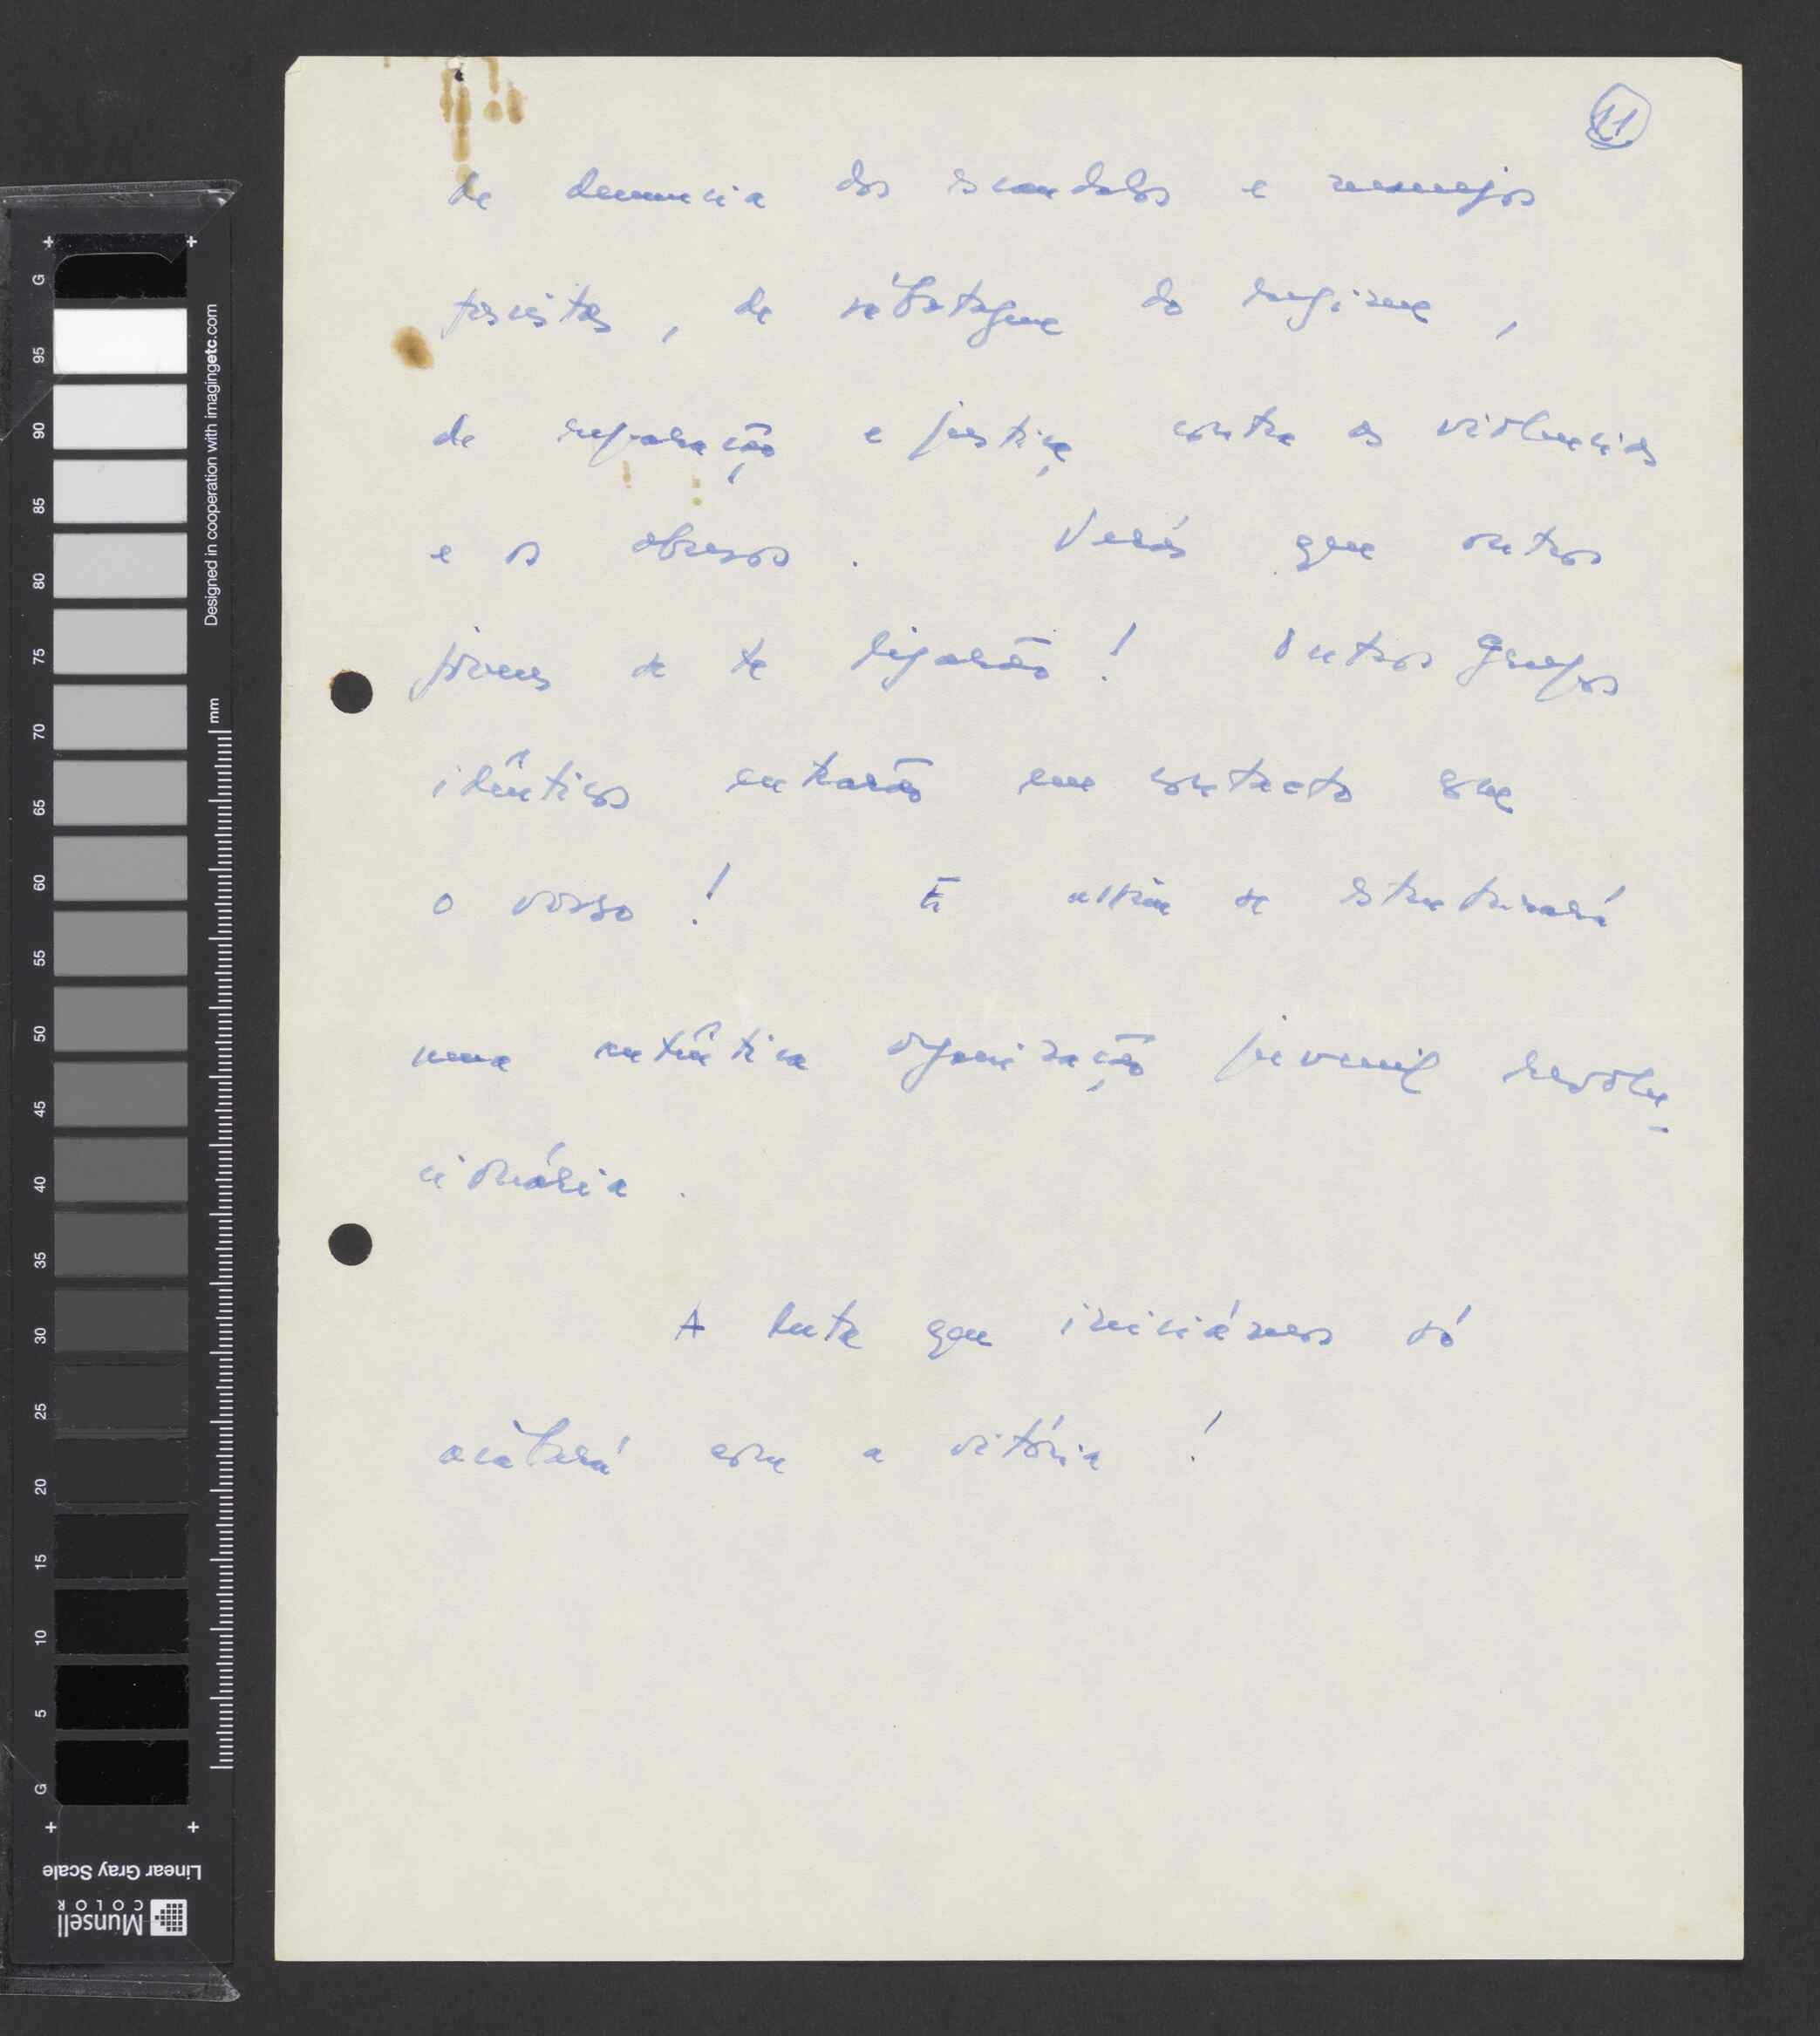 11
de denuncia dos escandalos e manejos
fascistas, de sabotagem do regime,
de reparação e justiça contra as violencias
e os abusos. Verás que outros
jovens se te ligarão! Outros grupos
idênticos entrarão em contacto com
o vosso! E assim se estruturará
uma autêntica organização juvenil revolu-
cionária.
A luta que iniciámos só
acabará com a vitória!
G
95
90
85
80
75
70
65
60
55
50
45
40
35
30
25
20
15
10
5
G
Designed in cooperation with imagingetc.com
mm
Linear Gray Scale
Munsell
COLOR